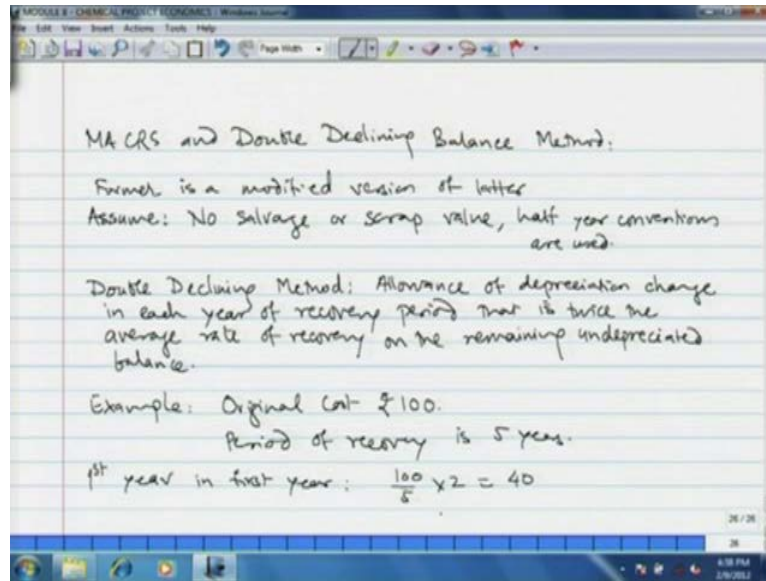 MODULE 8 - CHEMICAL PROJECT ECONOMICS - Windows Journal
File Edit View Insert Actions Tools Help
Page Width
MACRS and Double Declining Balance Method:
Former is a modified version of latter
Assume: No salvage or scrap value, half year conventions
are used.
Double Declining Method: Allowance of depreciation charge
in each year of recovery period that is twice the
average rate of recovery on the remaining undepreciated
balance.
Example: Orginal Cost ₹100.
Period of recovery is 5 years.
1st year in first year: 100/5 x 2 = 40
26 / 26
26
6:58 PM
2/9/2012